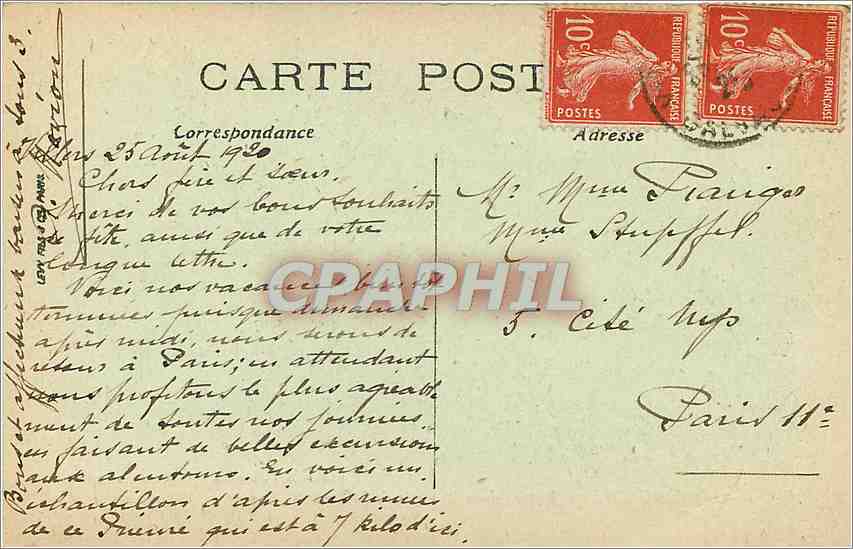 CARTE POST
Correspondance
Adresse
10c
REPUBLIQUE FRANÇAISE
POSTES
10c
REPUBLIQUE FRANÇAISE
POSTES
CALVA
25 Août 1920
Chers frère et Sœur.
Merci de vos bons souhaits
de fête, ainsi que de votre
longue lettre.
Voici nos vacances bientôt
terminées puisque dimanche
après midi, nous serons de
retour à Paris; en attendant
nous profitons le plus agréable
ment de toutes nos journées
en faisant de belles excursions
aux alentours. En voici un
échantillon d'après les ruines
de ce Prieuré qui est à 7 kilo d'ici.
Bons et affectueux baisers à tous 3.
LEVY FILS & CIE PARIS
Mr Mme
Mme
5. Cité
Paris 11e
CPAPHIL